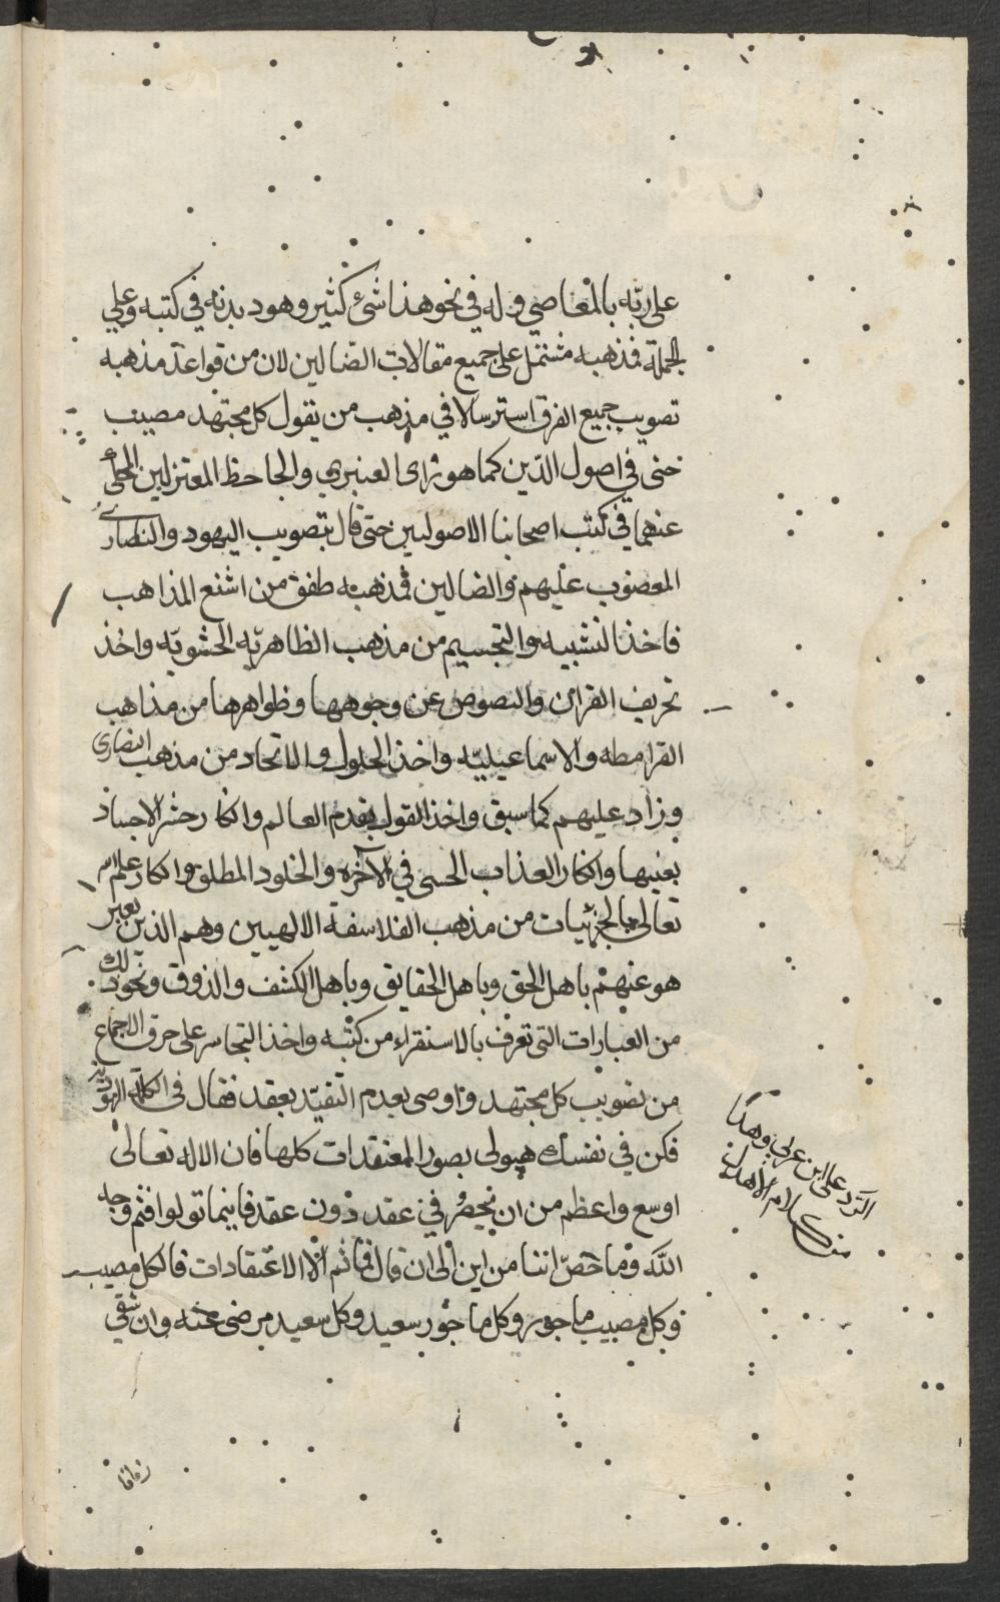 على ربّه بالمعاصي وله في نحو هذا شئ كثير وهو ديدنه في كتبه وعلي
الجملة فمذهبه مشتمل على جميع مقالات الضالين لان من قواعد مذهبه
تصويب جميع الفرق استرسالا في مذهب من يقول كل مجتهد مصيب
حتى في اصول الدّين كما هو راى العنبري والجاحظ المعتزليين المحكى
عنهما في كتب اصحابنا الاصوليين حتى قال بتصويب اليهود والنصارى
المغضوب عليهم والضالين فمذهبه طفق من اشنع المذاهب
فاخذ التشبيه والتجسيم من مذهب الظاهريّه الحشويّه واخذ
تحريف القرائن والنصوص عن وجوهها وظواهرها من مذاهب
القرامطه والاسماعيليّه واخذ الحلول والاتحاد من مذهب النصارى
وزاد عليهم كما سبق واخذ القول بقدم العالم وانكار حشر الاجساد
بعينها وانكار العذاب الحسى في الآخره والخلود المطلق وانكار علم الله
تعالى بالجزئيات من مذهب الفلاسفة الالهيين وهم الذين يعبر
هو عنهم باهل الحق وباهل الحقايق وباهل الكشف والذوق ونحو ذلك
من العبارات التى تعرف بالاستقراء من كتبه واخذ التجاسر على خرق الاجماع
من تصويب كل مجتهد واوصى بعدم التقيّد بعقد فقال في الكلمة الهوديّة
فكن في نفسك هيولى بصور المعتقدات كلها فان الاله تعالى
اوسع واعظم من ان يحصره في عقد دون عقد فاينما تولوا فثم وجه
الله وما خصّ اننا من اين الى ان قال فما ثم الا الاعتقادات فالكل مصيب
وكل مصيب ماجور وكل ماجور سعيد وكل سعيد مرضى عنه وان شقي
الرد على ابن عربي وهذا
من كلام الاهدل
زمانا